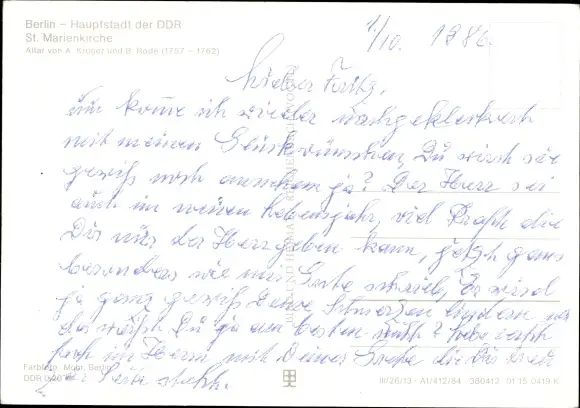 Berlin – Hauptstadt der DDR
St. Marienkirche
Altar von A. Krüger und B. Rode (1757 – 1762)
1./10. 1986
Lieber Fritz,
Nun komme ich wieder nachgekleckert
mit meinen Glückwünschen, Du wirst sie
gewiß noch annehmen ja? Der Herr sei
auch im neuen Lebensjahr, viel Kraft die
Dir nur der Herr geben kann, jetzt ganz
besonders wie uns schrieb, Er wird
ja ganz gewiß Deine Schmerzen lindern
das weißt Du ja am besten
im Herrn mit Deiner die Dir
zur Seite steht.
BILD UND HEIMAT
Farbfoto: Mohr, Berlin
III/26/13 - A1/412/84 360412 01 15 0419 K